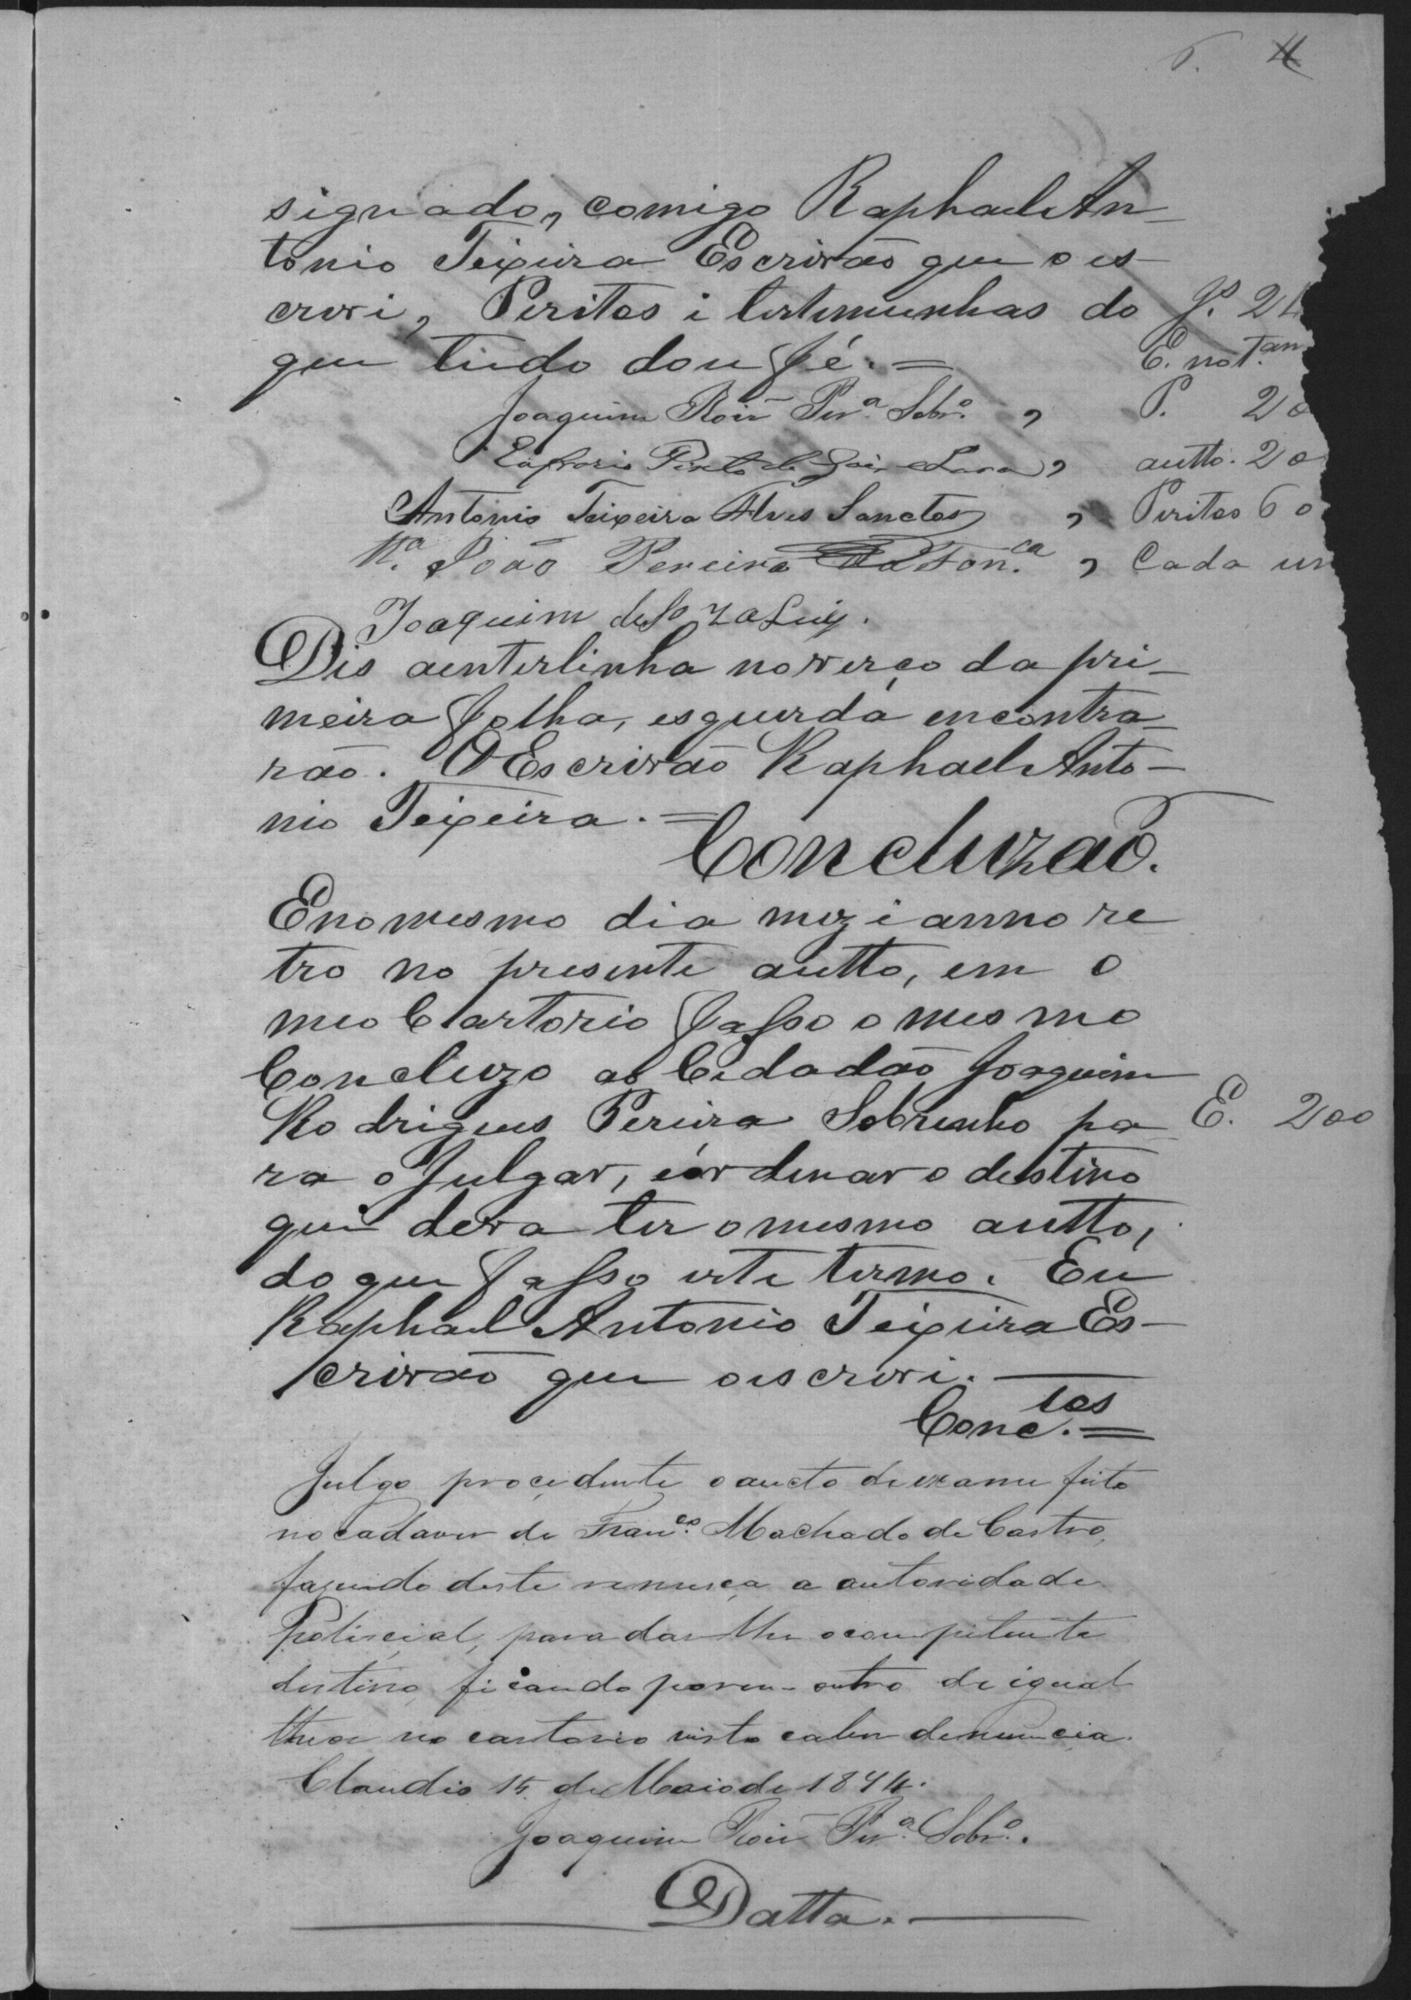 4
signado, comigo Raphael An-
tonio Teixeira Escrivão que o es-
crevi, Peritos i testemunhas do
que tudo dou fé. =
Jˢ. 2
E. not.
Joaquim Roiz Perª Sobrº. ,
P. 20
Pinto de ,
autto. 20
Antonio Teixeira Alves Sanctos ,
Peritos 60
João Pereira da Fon.ca ,
Cada un
Joaquim de Souza Luiz.
Dis aenterlinha no verço da pri-
meira folha, esquerda encontra-
rão. O Escrivão Raphael Anto-
nio Teixeira. =
Concluzaõ.
E no mesmo dia mez i anno re
tro no presente autto, em o
meo Cartorio fasso o mesmo
Concluzo ao Cidadão Joaquim
Rodrigues Pereira Sobrinho pa
E. 200
ra o julgar, e ordenar o destino
que deva ter o mesmo autto,
do que fasso este termo. Eu
Raphael Antonio Teixeira Es-
crivão que o escrevi.
Conc.tos =
Julgo procedente o aucto de exame feito
no cadaver de Franco. Machado de Castro,
fazendo deste remeça a autoridade
Poliçial, para dar lhe o competente
destino, ficando porem outro de igual
theor no cartorio visto caber denuncia.
Claudio 15 de Maio de 1894.
Joaquim Roiz Perª. Sobrº.
Datta.